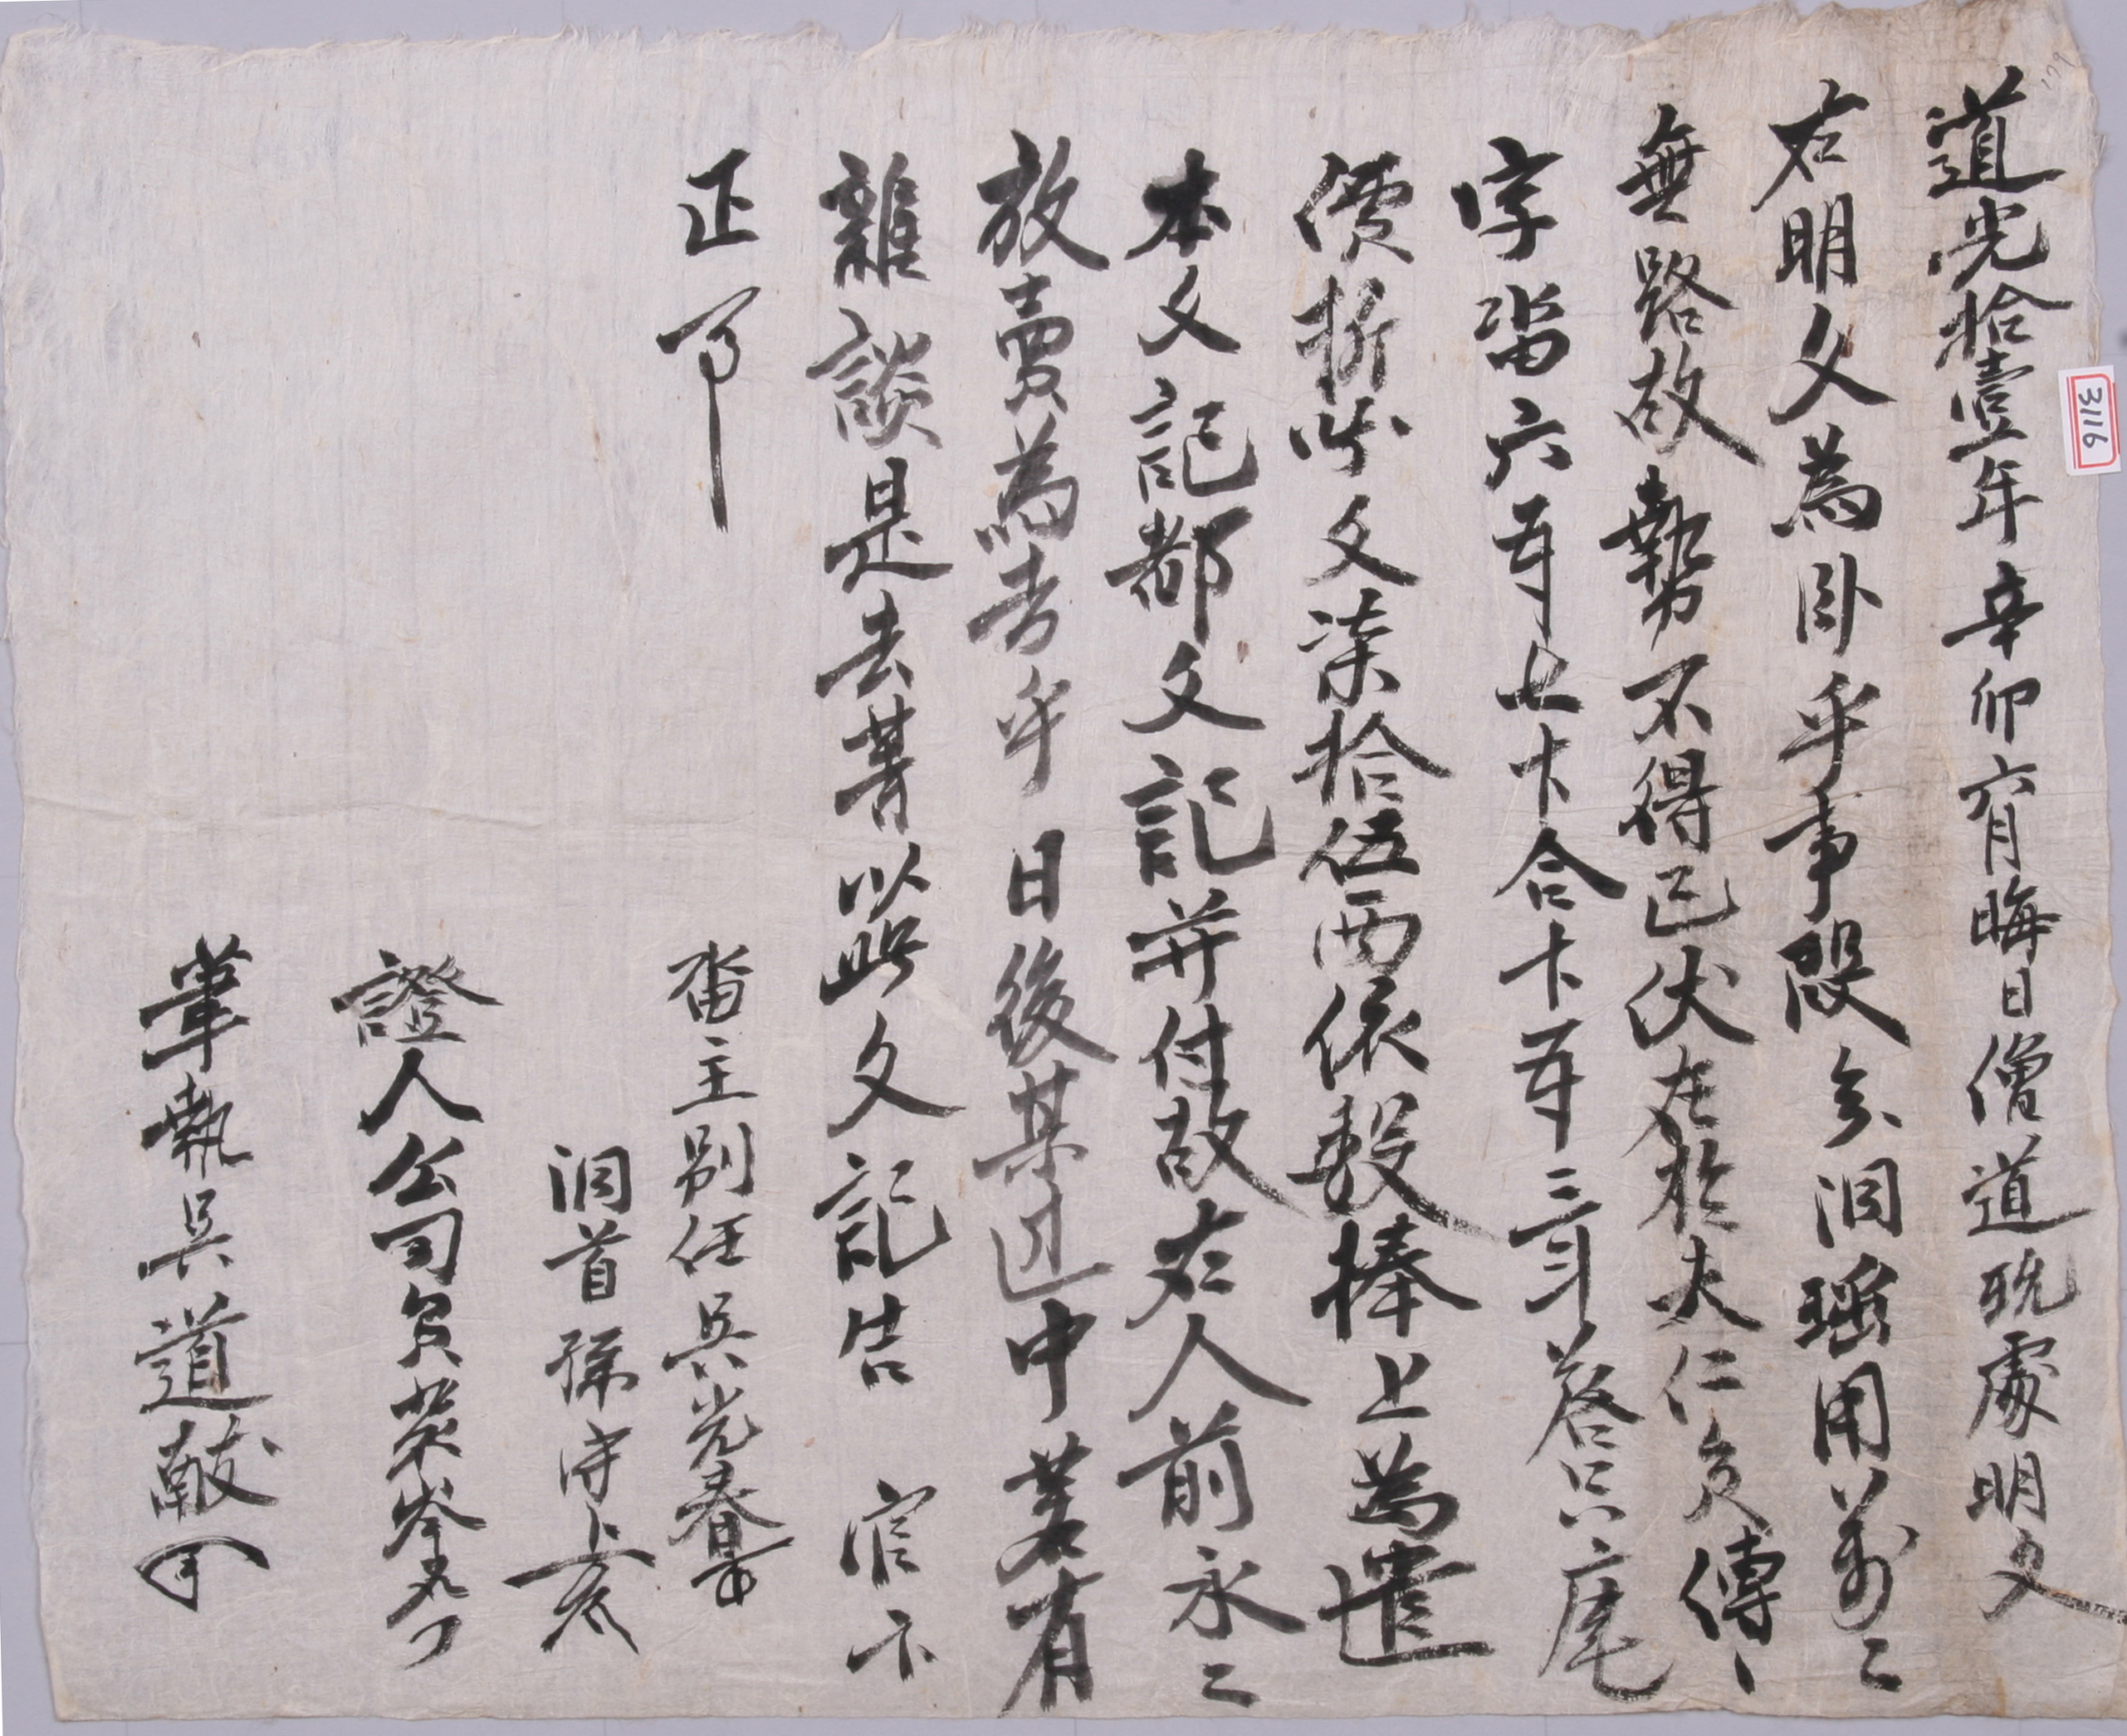 道光拾壹年辛卯六月晦日僧道 處明文
右明文為臥乎事段 洞 用萬〻
無路故勢不得已伏在於大仁員傳丶
字畓六斗七卜合卜 三斗落只庖
價折 文柒拾伍兩依數捧上為遣
本文記都文記并付故右人前永〻
放賣為去乎日後某邊中若有
雜談是去等以此文記告官卞
正事
畓主別任吳光春
洞首孫守
證人公司員
筆執吳道
3116
179